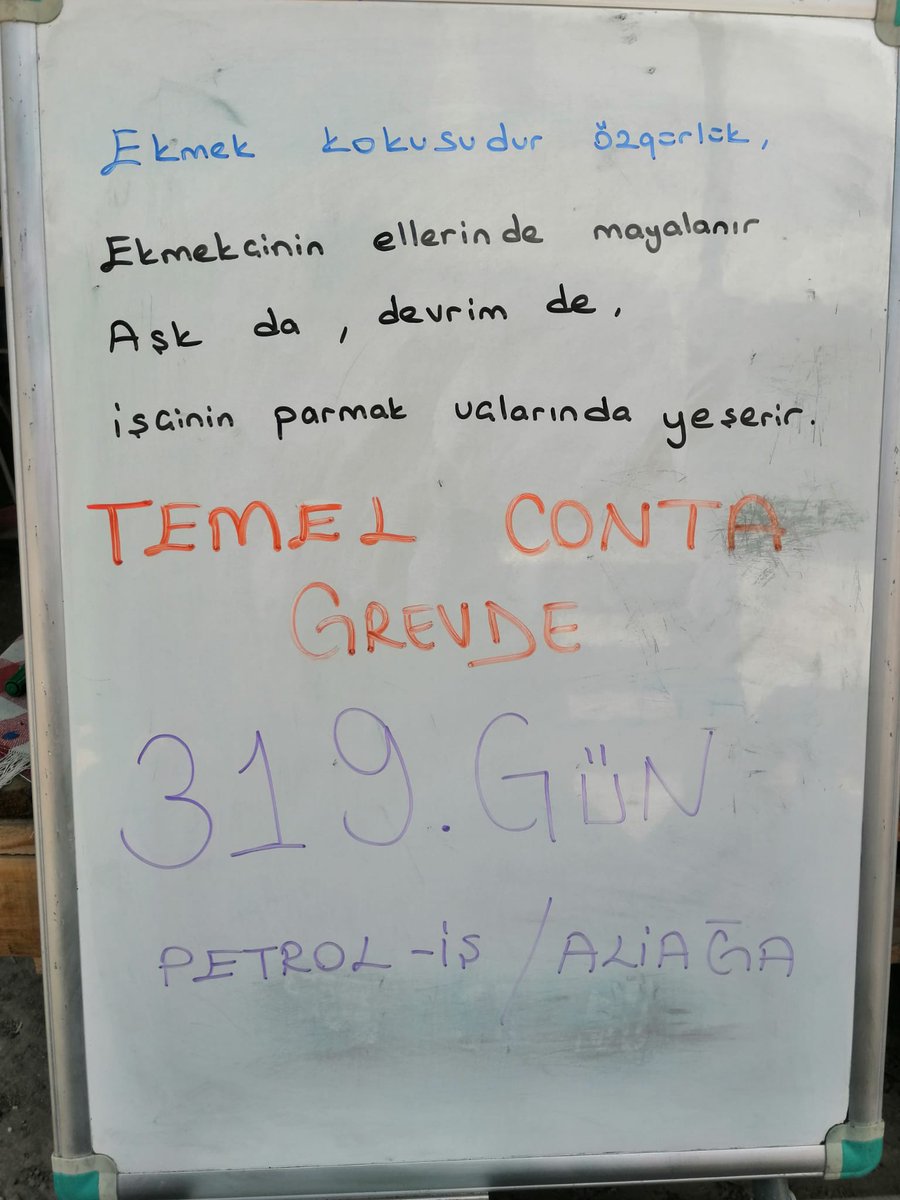 Ekmek kokusudur özgürlük,
Ekmekçinin ellerinde mayalanır
Aşk da, devrim de,
işçinin parmak uçlarında yeşerir.
TEMEL CONTA
GREVDE
319. GÜN
PETROL-İŞ / ALİAĞA